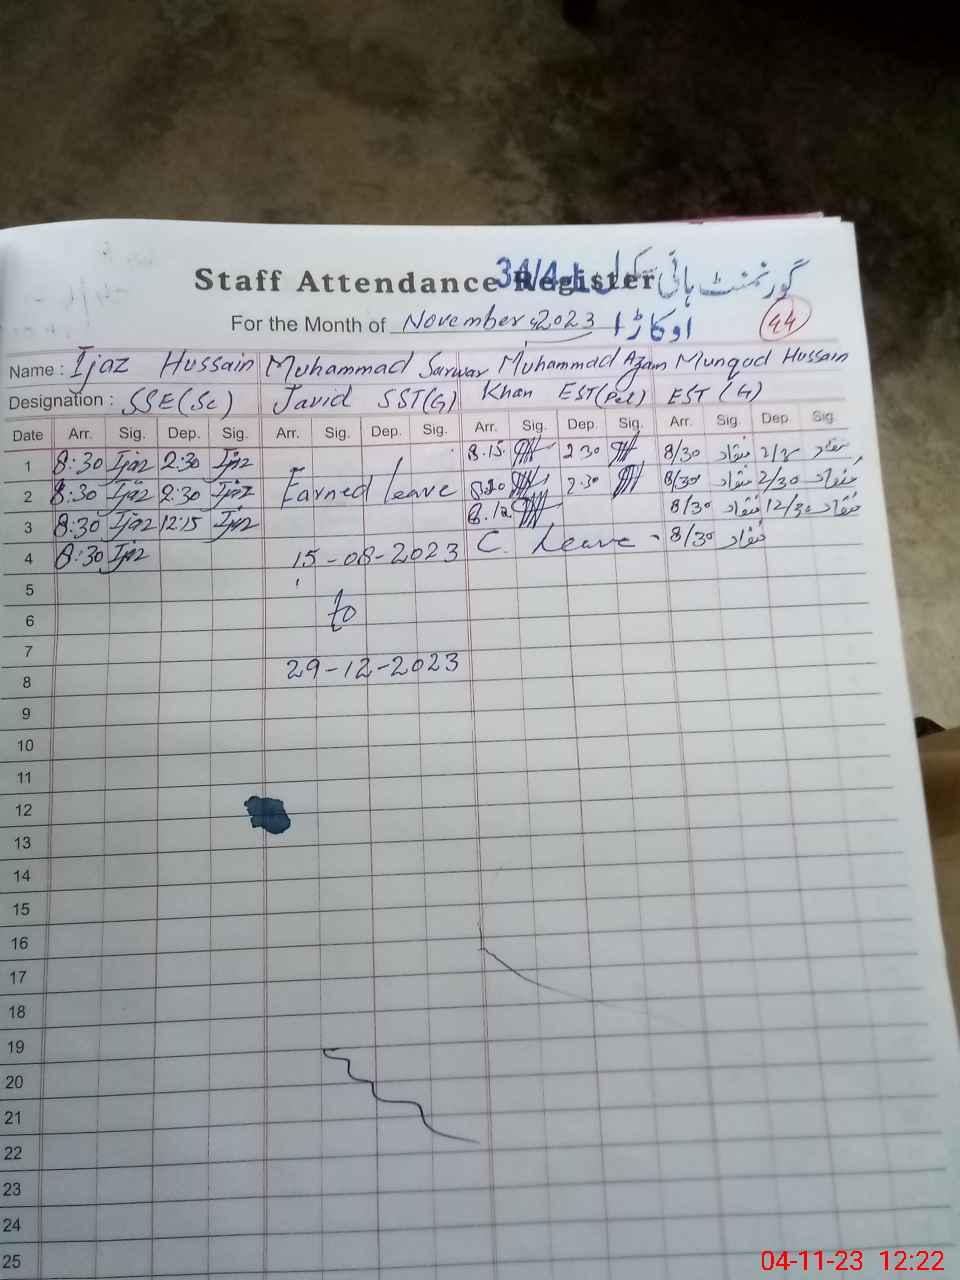 گورنمنٹ ہائی سکول 34/4-L
Staff Attendance Register
اوکاڑا
44
For the Month of November, 2023
Name : Ijaz Hussain Muhammad Sarwar Muhammad Azam Hussain
Designation : SSE(Sc) Javid SST(G) Khan EST(Pet) EST (G)
Date Arr. Sig. Dep. Sig. Arr. Sig. Dep. Sig. Arr. Sig. Dep. Sig. Arr. Sig. Dep. Sig.
1 8:30 Ijaz 2:30 Ijaz 8.15 2 30 8/30
2 8:30 Ijaz 2:30 Ijaz Earned leave 8.20 2.30 8/30 2/30
3 8:30 Ijaz 12:15 Ijaz 8.12 8/30 12/30
4 8:30 Ijaz 15-08-2023 C. Leave - 8/30
5
6 to
7
8 29-12-2023
9
10
11
12
13
14
15
16
17
18
19
20
21
22
23
24
25
04-11-23 12:22